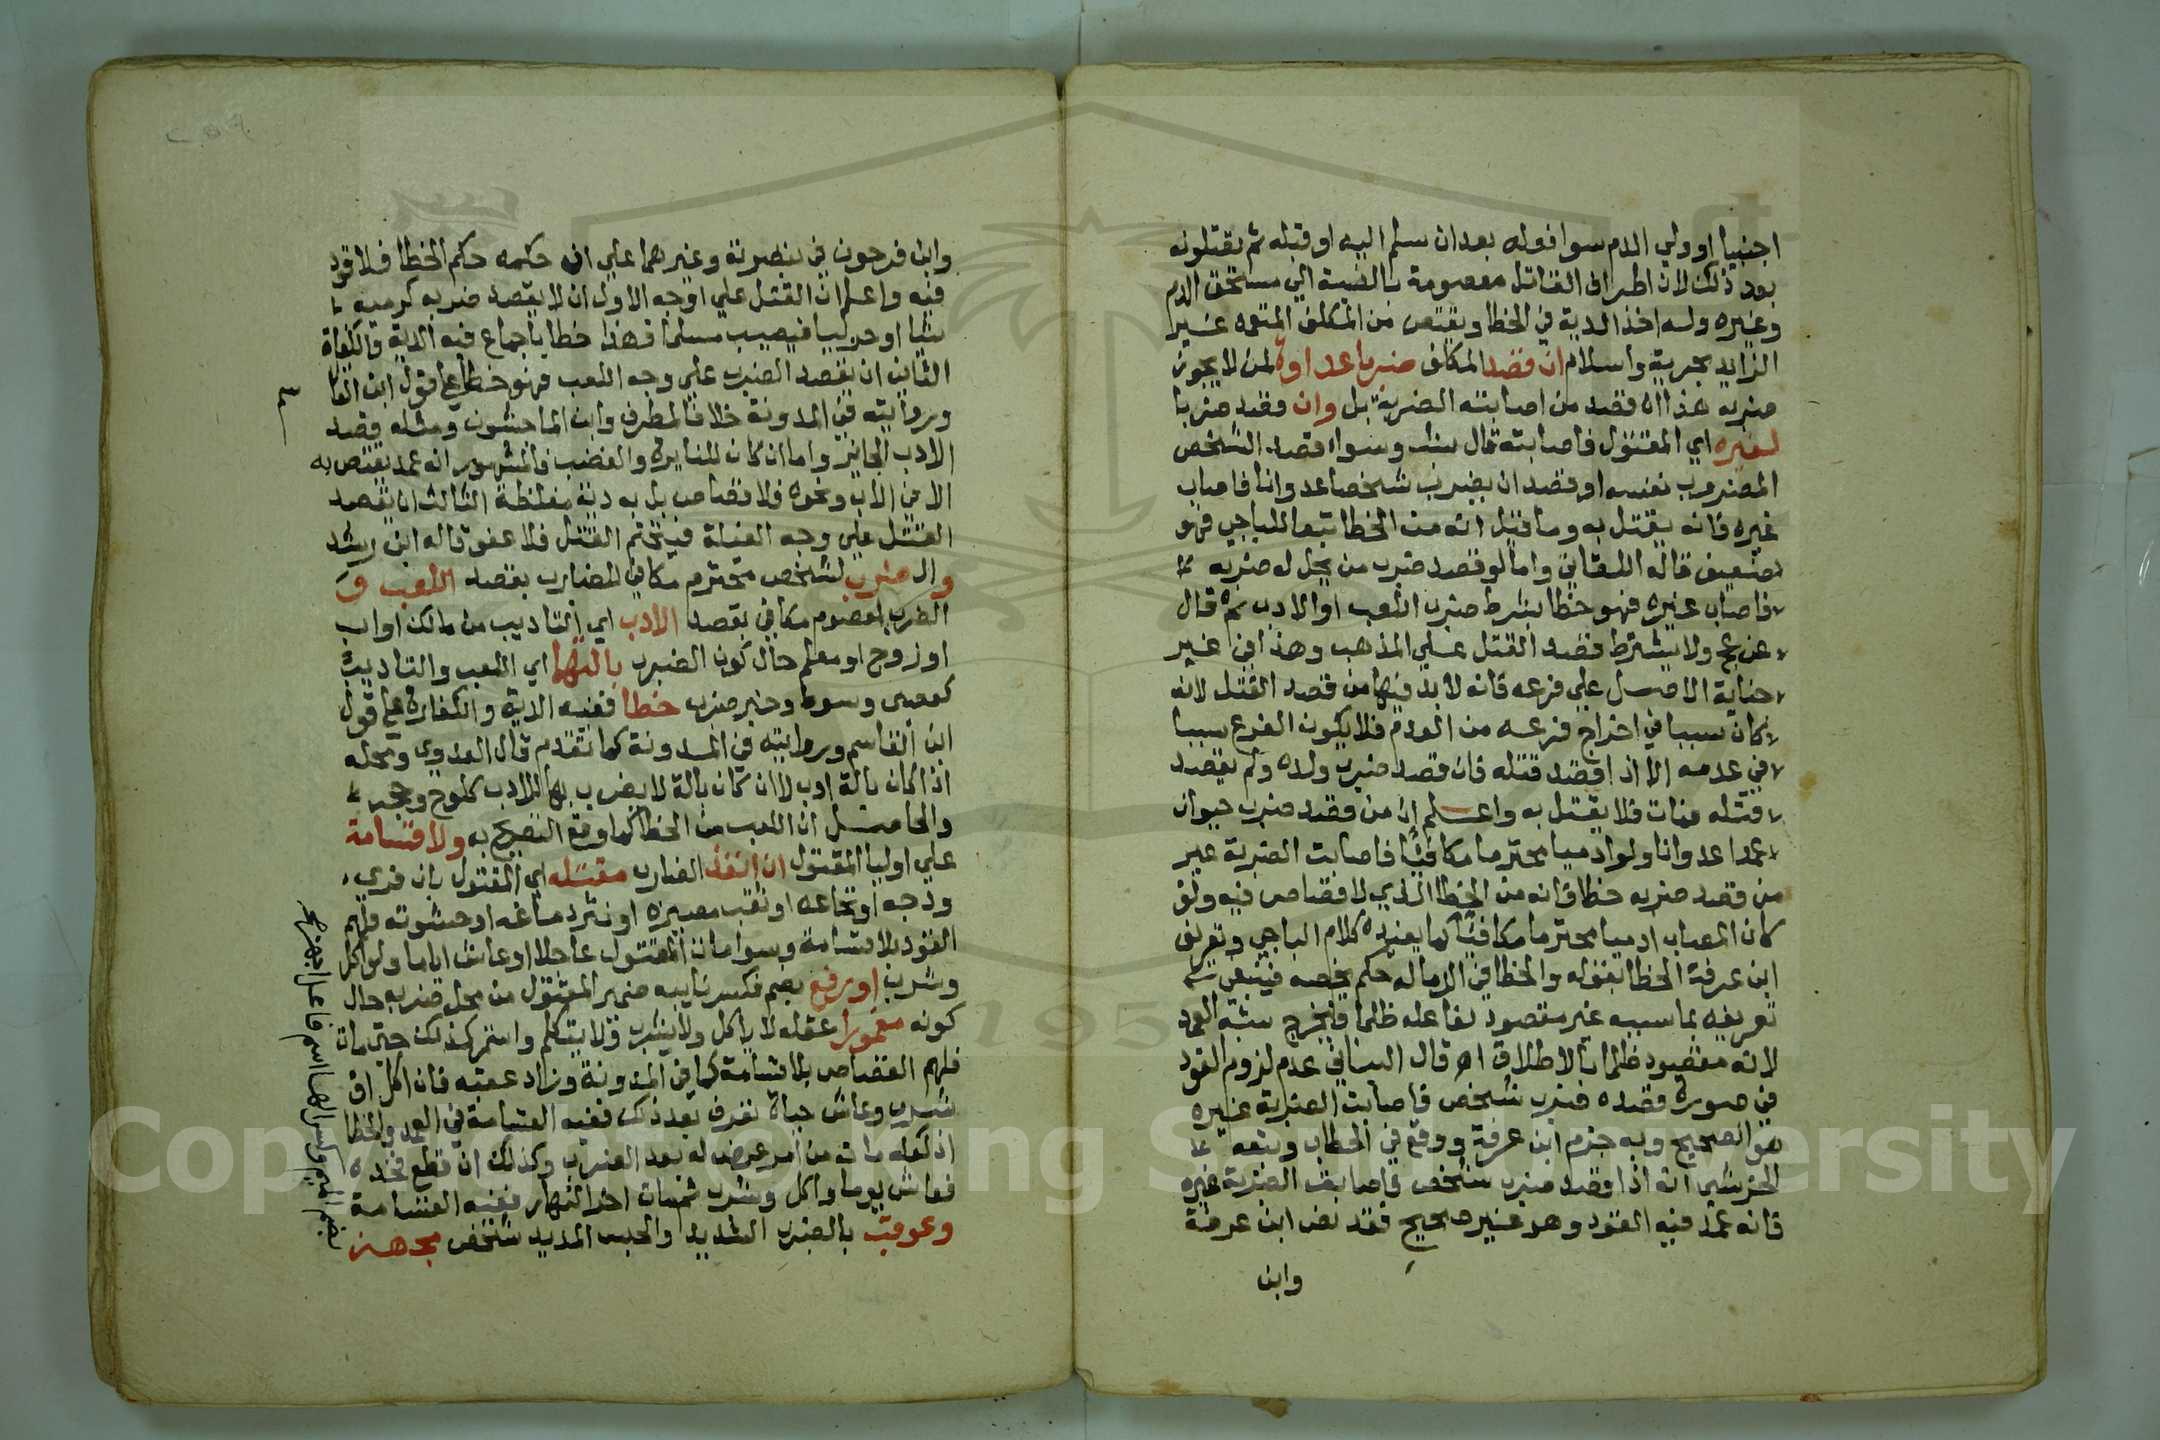 اجنبيا او ولي الدم سوا فوله بعد ان سلم اليه او قبله ثم يقتلونه
بعد ذلك لان اطراف القاتل معصومة بالنسبة الي مستحق الدم
وغيره وله اخذ الدية في الخطا ويقتص من المكلف المتعمد غير
الزايد بحرية واسلام ان قصد المكلف ضربا عداوة لمن لا يجوز
ضربه هذا اذا قصد من اصابته الضربة بل وان قصد ضربا
لغيره اي المقتول فاصابته قال سند وسواء قصد الشخص
المضروب نفسه او قصد ان يضرب شخصا عدوانا فاصاب
غيره فانه يقتل به وما قيل انه من الخطا تبعا للباجي فهو
ضعيف قاله اللقاني واما لو قصد ضرب من يحل له ضربه
فاصاب غيره فهو خطا بشرط ضرب اللعب او الادب ثم قال
عن عج ولا يشترط قصد القتل علي المذهب وهذا في غير
جناية الاصل علي فرعه فانه لابد فيها من قصد القتل لانه
كان سببا في اخراج فرعه من العدم فلا يكون الفرع سببا
في عدمه الا اذا قصد قتله فان قصد ضرب ولده ولم يقصد
قتله فمات فلا يقتل به واعلم ان من قصد ضرب حيوان
عمدا عدوانا ولو ادميا محترما مكافئا فاصابت الضربة غير
من قصد ضربه خطا فانه من الخطا الذي لا قصاص فيه ولو
كان المصاب ادميا محترما مكافئا كما يفيده كلام الباجي وتعريف
ابن عرفة الخطا بقوله والخطا في الدما له حكم يخصه فينبغي
تعريفه بما سببه غير مقصود لفاعله ظلما فيخرج شبه العمد
لانه مقصود ظلما بالاطلاق اه قال البناني عدم لزوم القود
في صورة قصده ضرب شخص فاصابت الضربة غيره
هو الصحيح وبه جزم ابن عرفة ووقع في الحطاب وتبعه
الخرشي انه اذا قصد ضرب شخص فاصابت الضربة غيره
فانه عمد فيه القود وهو غير صحيح فقد نص ابن عرفة
وابن
وابن فرحون في تبصرته وغيرهما علي ان حكمه حكم الخطا فلا قود
فيه واعلم ان القتل علي اوجه الاول ان لا يقصد ضربه كرميه
شيا او حربيا فيصيب مسلما فهذا خطا باجماع فيه الدية والكفارة
الثاني ان يقصد الضرب علي وجه اللعب فهو خطا علي قول ابن القا
وروايته في المدونة خلافا لمطرف وابن الماجشون ومثله قصد
الادب الجايز واما ان كان للنايرة والغضب فالمشهور انه عمد يقتص به
الا من الاب ونحوه فلا قصاص بل به دية مغلظة الثالث ان يقصد
القتل علي وجه الغيلة فيتحتم القتل فلا عفو قاله ابن رشد
وال ضرب لشخص محترم مكافئ للضارب بقصد اللعب و
الضرب لمعصوم مكافئ بقصد الادب اي التاديب من مالك او اب
او زوج او معلم حال كون الضرب بالتها اي اللعب والتاديب
كعصي وسوط وخبر ضرب خطا ففيه الدية والكفارة علي قول
ابن القاسم وروايته في المدونة كما تقدم قال العدوي ومحله
اذا كان بالة ادب لا ان كان بالة لا يضرب بها للادب كلوح وحجر
والحاصل ان اللعب من الخطا كما وقع التصريح به ولا قسامة
علي اوليا المقتول ان انفذ الضارب مقتله اي المقتول بان فري
ودجه او نخاعه او ثقب مصيره او نثر دماغه او حشوته فلهم
القود بلا قسامة وسوا مات المقتول عاجلا او عاش اياما ولو اكل
وشرب او رفع بضم فكسر نايبه ضمير المقتول من محل ضربه حال
كونه مغمورا عقله لا ياكل ولا يشرب ولا يتكلم واستمر كذلك حتي مات
فلهم القصاص بلا قسامة كما في المدونة وزاد عقبه فان اكل او
شرب وعاش حياة تعرف بعد ذلك ففيه القسامة في العمد والخطا
اذ لعله مات من امر عرض له بعد الضرب وكذلك ان قطع فخذه
فعاش يوما واكل وشرب ثم مات اخر النهار ففيه القسامة
وعوقب بالضرب الشديد والحبس المديد شخص مجهز
بضم الميم وكسر الها اسم فاعل اجهز